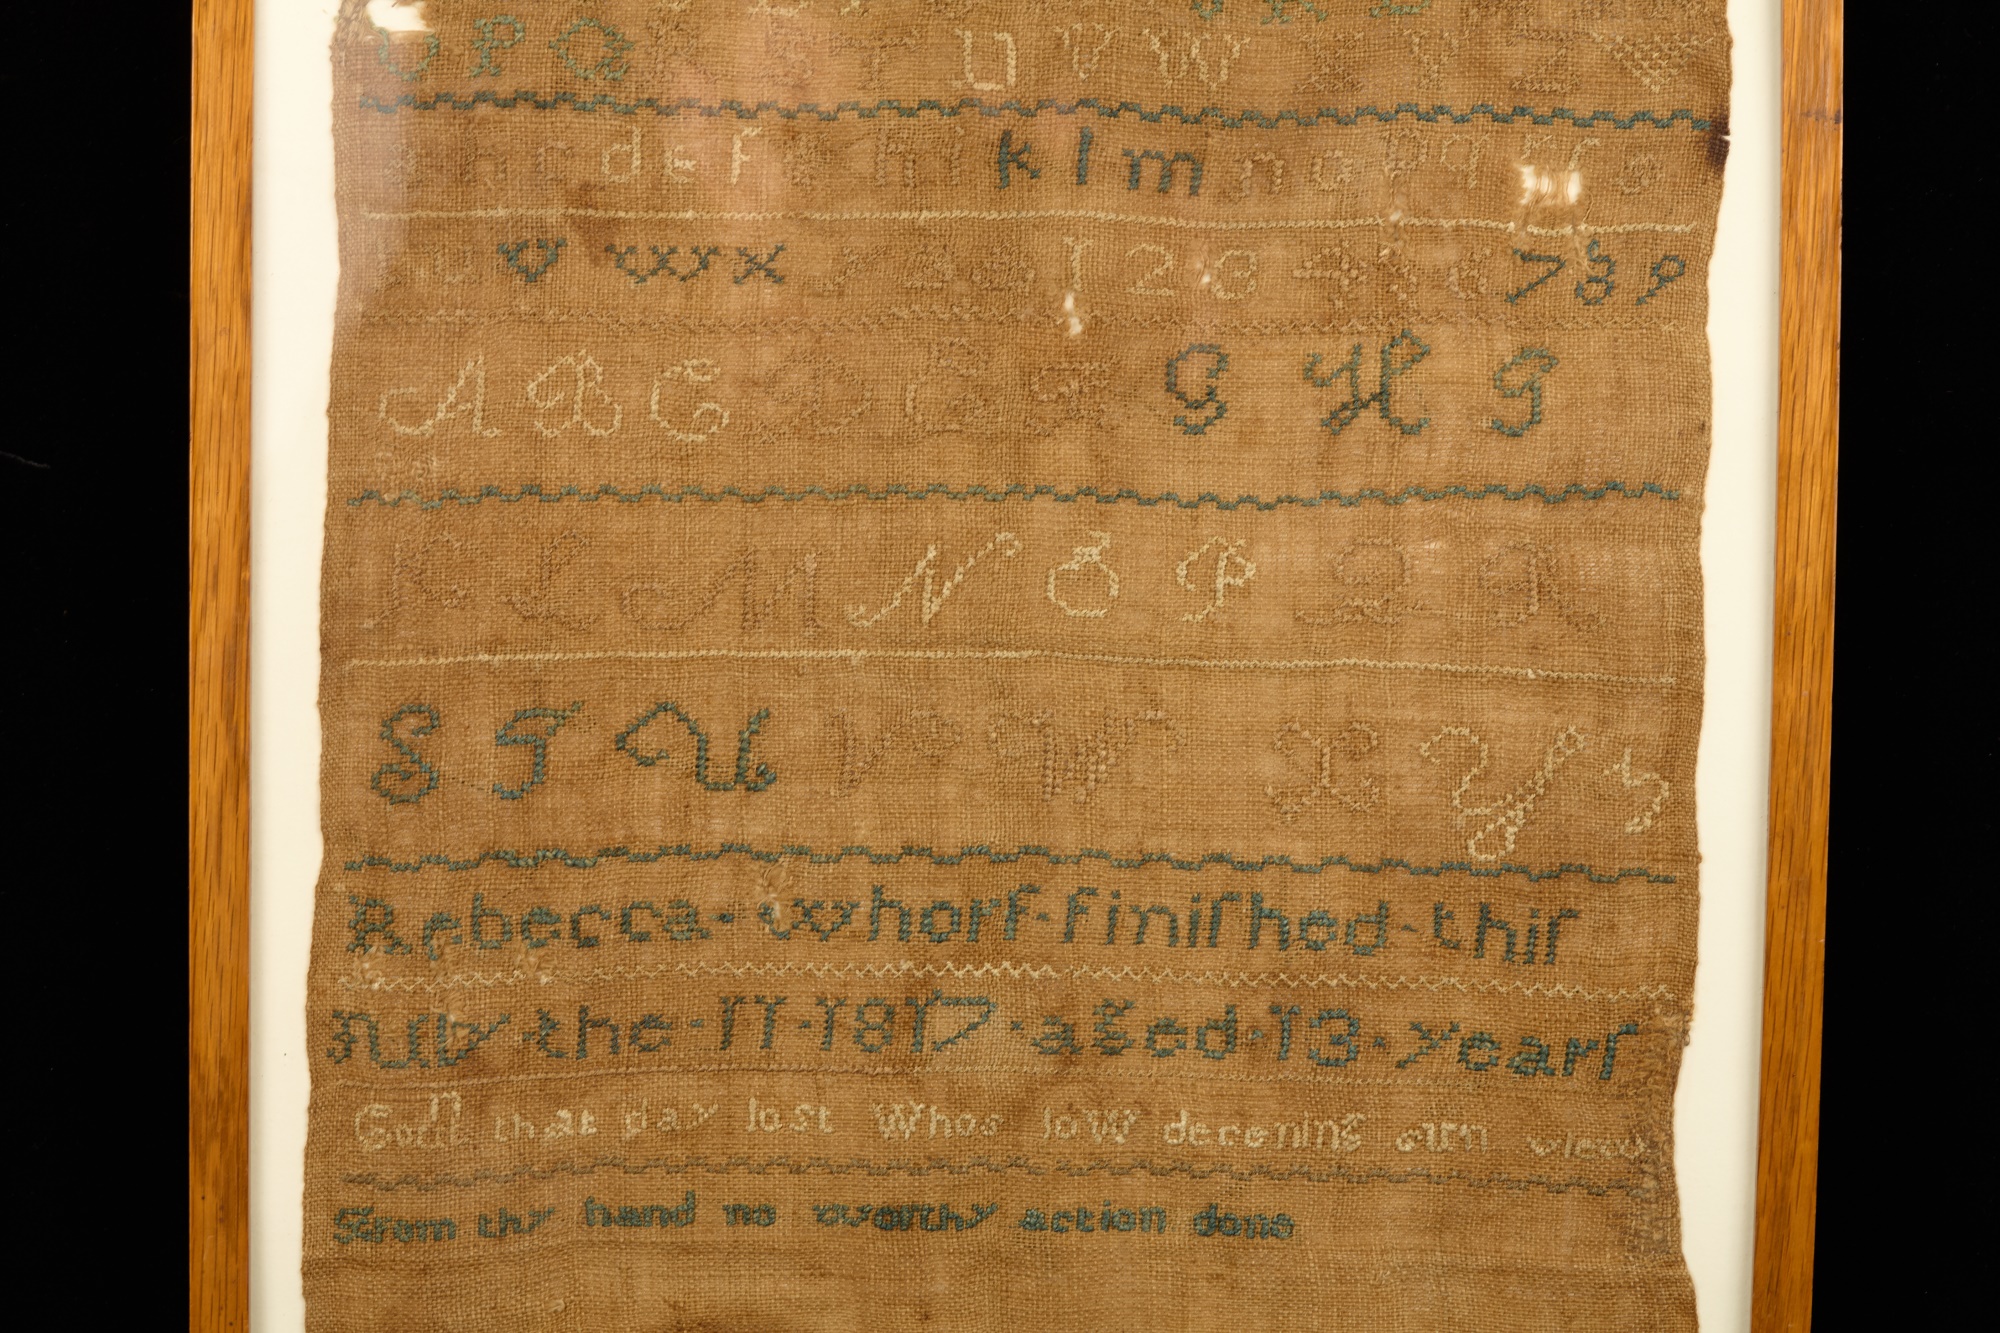 O P Q R S T U V W X Y Z
a b c d e f g h i k l m n o p q r ſ s
t u v w x y z 1 2 3 4 5 6 7 8 9
A B C D E F G H I
K L M N O P Q R
S T U V W X Y Z
Rebecca · Whorf · finiſhed · thiſ
July · the · 11 · 1817 · aged · 13 · yearſ
that day lost Whos low decening sun views
From thy hand no worthy action done